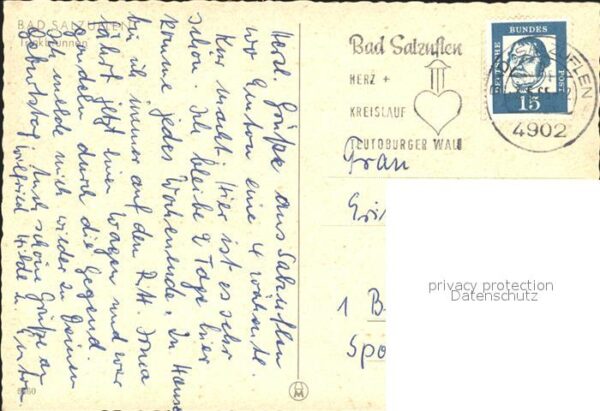 BAD SALZUFLEN
Trinkbrunnen
Herzl. Grüße aus Salzuflen
wo Anton eine 4 wöchentl.
Kur macht. Hier ist es sehr
schön. Ich bleibe 2 Tage hier
komme jedes Wochenende. Zu Hause
bin ich immer auf den Ritt. Irma
fährt jetzt den Wagen und wir
gondeln durch die Gegend.
Ich melde mich wieder zu Deinem
Geburtstag. Auch schöne Grüße an
Wilfried Hilde u.
6060
Bad Salzuflen
HERZ +
KREISLAUF
TEUTOBURGER WALD
DEUTSCHE BUNDES POST
15
4902
Frau
1 B
Spa
privacy protection
Datenschutz